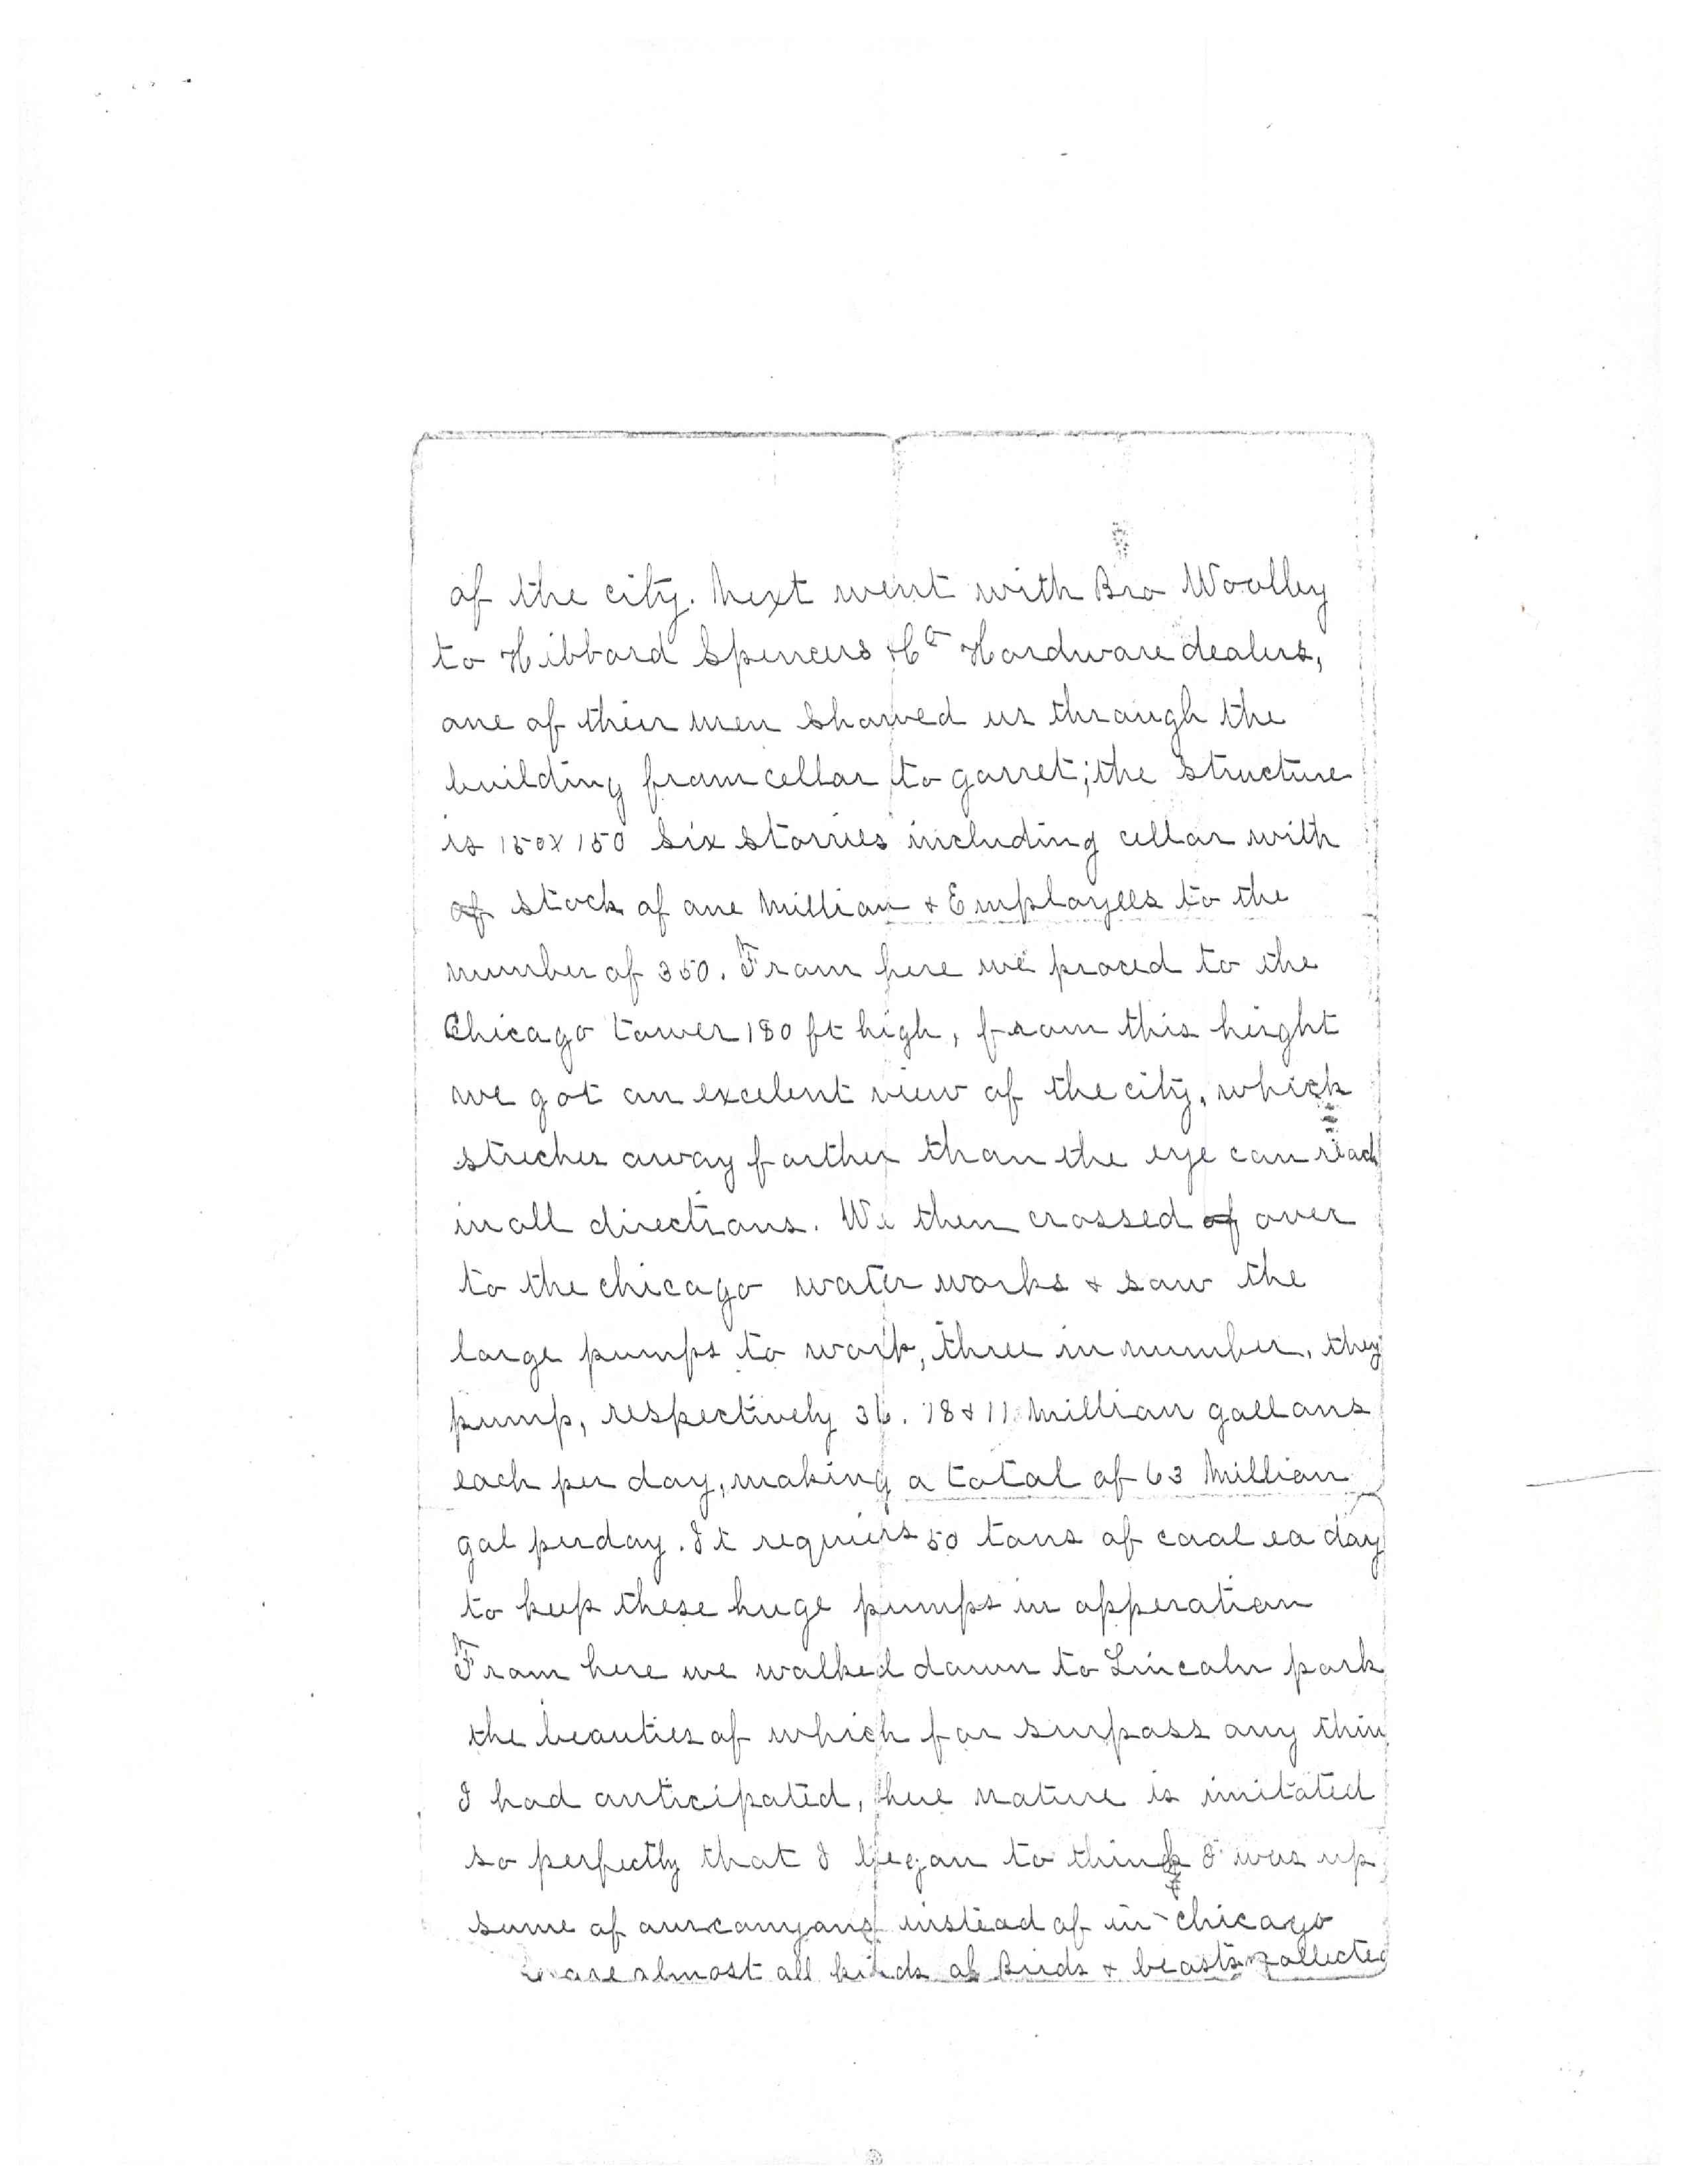 of the city. Next went with Bro Woolley
to Hibbard Spencers & Co Hardware dealers,
one of their men showed us through the
building from cellar to garret; the structure
is 150x150 six storries including cellar with
of stock of one Million & Employees to the
number of 350. From here we proced to the
Chicago tower 180 ft high, from this height
we got an excelent view of the city, which
streches away farther than the eye can reach
in all directions. We then crossed of over
to the chicago water works & saw the
large pumps to work, three in number, they
pump, respectively 36. 18 & 11 Million gallons
each per day, making a total of 63 Million
gal per day. It requiers 50 tons of coal ea day
to keep these huge pumps in opperation
From here we walked down to Lincoln park
the beauties of which far surpass any thin
I had anticipated, here nature is imitated
so perfectly that I began to think I was up
some of our canyons instead of in chicago
are almost all kinds of Birds & beasts collected